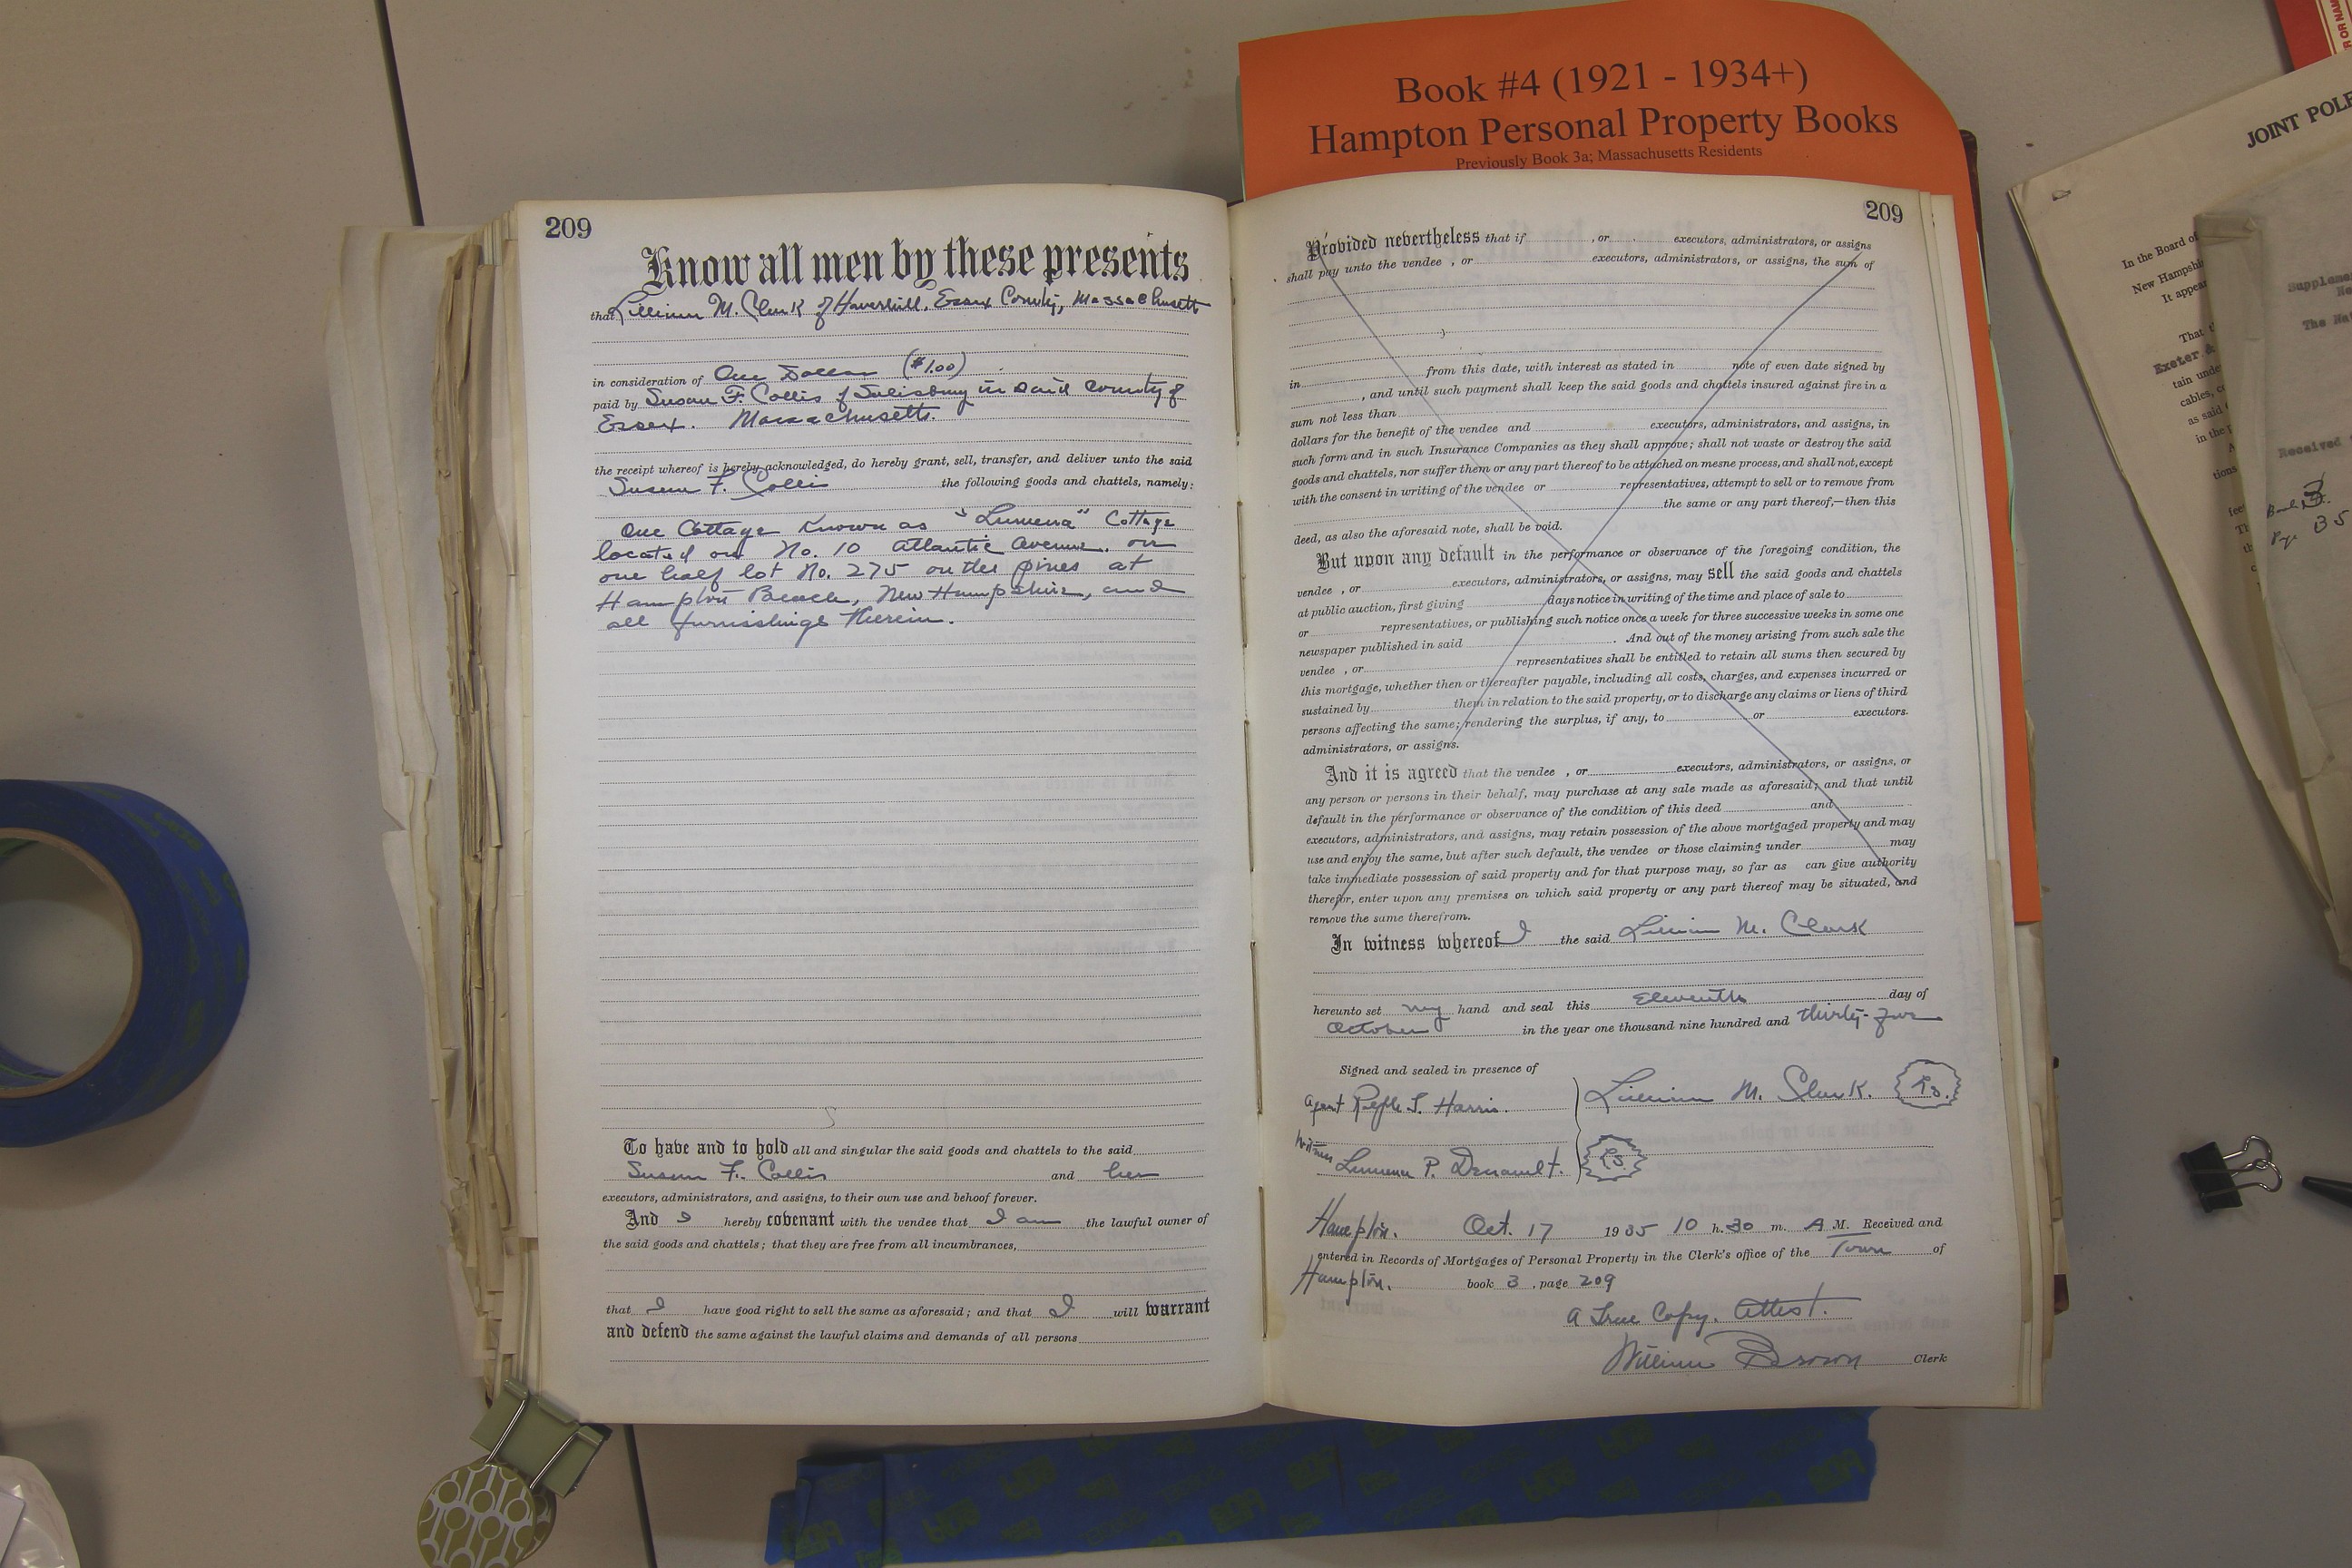 Book #4 (1921 - 1934+)
Hampton Personal Property Books
Previously Book 3a; Massachusetts Residents
209
Know all men by these presents
that Lillian M. Clark of Haverhill, Essex County, Massachusetts
in consideration of One Dollar ($1.00)
paid by Susan F. Collis of Salisbury in said County of
Essex. Massachusetts.
the receipt whereof is hereby acknowledged, do hereby grant, sell, transfer, and deliver unto the said
Susan F. Collis the following goods and chattels, namely:
One Cottage Known as "Lumena" Cottage
located on No. 10 Atlantic Avenue. on
one half lot No. 275 on the pines at
Hampton Beach, New Hampshire, and
all furnishings therein.
To have and to hold all and singular the said goods and chattels to the said
Susan F. Collis and her
executors, administrators, and assigns, to their own use and behoof forever.
And I hereby covenant with the vendee that I am the lawful owner of
the said goods and chattels; that they are free from all incumbrances,
that I have good right to sell the same as aforesaid; and that I will warrant
and defend the same against the lawful claims and demands of all persons
209
Provided nevertheless that if , or executors, administrators, or assigns
shall pay unto the vendee , or executors, administrators, or assigns, the sum of
in from this date, with interest as stated in note of even date signed by
, and until such payment shall keep the said goods and chattels insured against fire in a
sum not less than
dollars for the benefit of the vendee and executors, administrators, and assigns, in
such form and in such Insurance Companies as they shall approve; shall not waste or destroy the said
goods and chattels, nor suffer them or any part thereof to be attached on mesne process, and shall not, except
with the consent in writing of the vendee or representatives, attempt to sell or to remove from
the same or any part thereof,—then this
deed, as also the aforesaid note, shall be void.
But upon any default in the performance or observance of the foregoing condition, the
vendee , or executors, administrators, or assigns, may sell the said goods and chattels
at public auction, first giving days notice in writing of the time and place of sale to
or representatives, or publishing such notice once a week for three successive weeks in some one
newspaper published in said . And out of the money arising from such sale the
vendee , or representatives shall be entitled to retain all sums then secured by
this mortgage, whether then or thereafter payable, including all costs, charges, and expenses incurred or
sustained by them in relation to the said property, or to discharge any claims or liens of third
persons affecting the same; rendering the surplus, if any, to or executors.
administrators, or assigns.
And it is agreed that the vendee , or executors, administrators, or assigns, or
any person or persons in their behalf, may purchase at any sale made as aforesaid; and that until
default in the performance or observance of the condition of this deed and
executors, administrators, and assigns, may retain possession of the above mortgaged property and may
use and enjoy the same, but after such default, the vendee or those claiming under may
take immediate possession of said property and for that purpose may, so far as can give authority
therefor, enter upon any premises on which said property or any part thereof may be situated, and
remove the same therefrom.
In witness whereof I the said Lillian M. Clark
hereunto set my hand and seal this Eleventh day of
October in the year one thousand nine hundred and thirty-five
Signed and sealed in presence of
Agent Ralph J. Harris. Lillian M. Clark. L.S.
Witness Lumena P. Denault. L.S.
Hampton. Oct. 17 1935 10 h. 30 m. A M. Received and
entered in Records of Mortgages of Personal Property in the Clerk's office of the Town of
Hampton. book 3 , page 209
A True Copy. Attest.
William Brown Clerk
JOINT POLE
In the Board of
New Hampshi
It appea
That t
Exeter &
tain unde
cables, co
as said
in the p
tions
Supplemen
The Nat
Received
Book 3.
Page 35